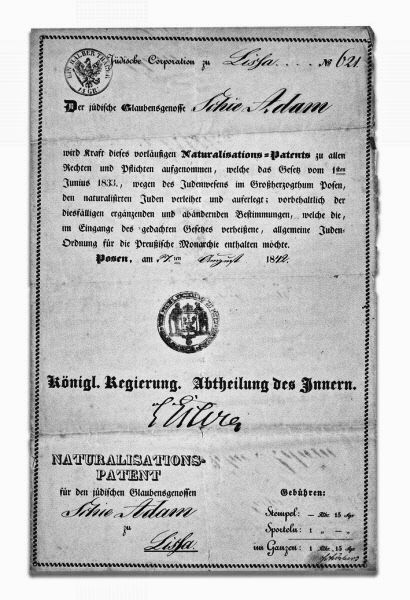 EIN HALBER THALER
15 GR.
Jüdische Corporation zu Lissa. . . . № 621
Der jüdische Glaubensgenosse Schie Adam
wird Kraft dieses vorläufigen Naturalisations-Patents zu allen
Rechten und Pflichten aufgenommen, welche das Gesetz vom 1sten
Junius 1833., wegen des Judenwesens im Großherzogthum Posen,
den naturalisirten Juden verleihet und auferlegt; vorbehaltlich der
diesfälligen ergänzenden und abändernden Bestimmungen, welche die,
im Eingange des gedachten Gesetzes verheißene, allgemeine Juden-
Ordnung für die Preußische Monarchie enthalten möchte.
Posen, am August 1842.
Königl. Regierung. Abtheilung des Innern.
NATURALISATIONS-
PATENT
für den jüdischen Glaubensgenossen
Schie Adam
zu
Lissa.
Gebühren:
Stempel: — Rtlr. 15 Sgr.
Sporteln: 1 „ — „
im Ganzen: 1 Rtlr. 15 Sgr.